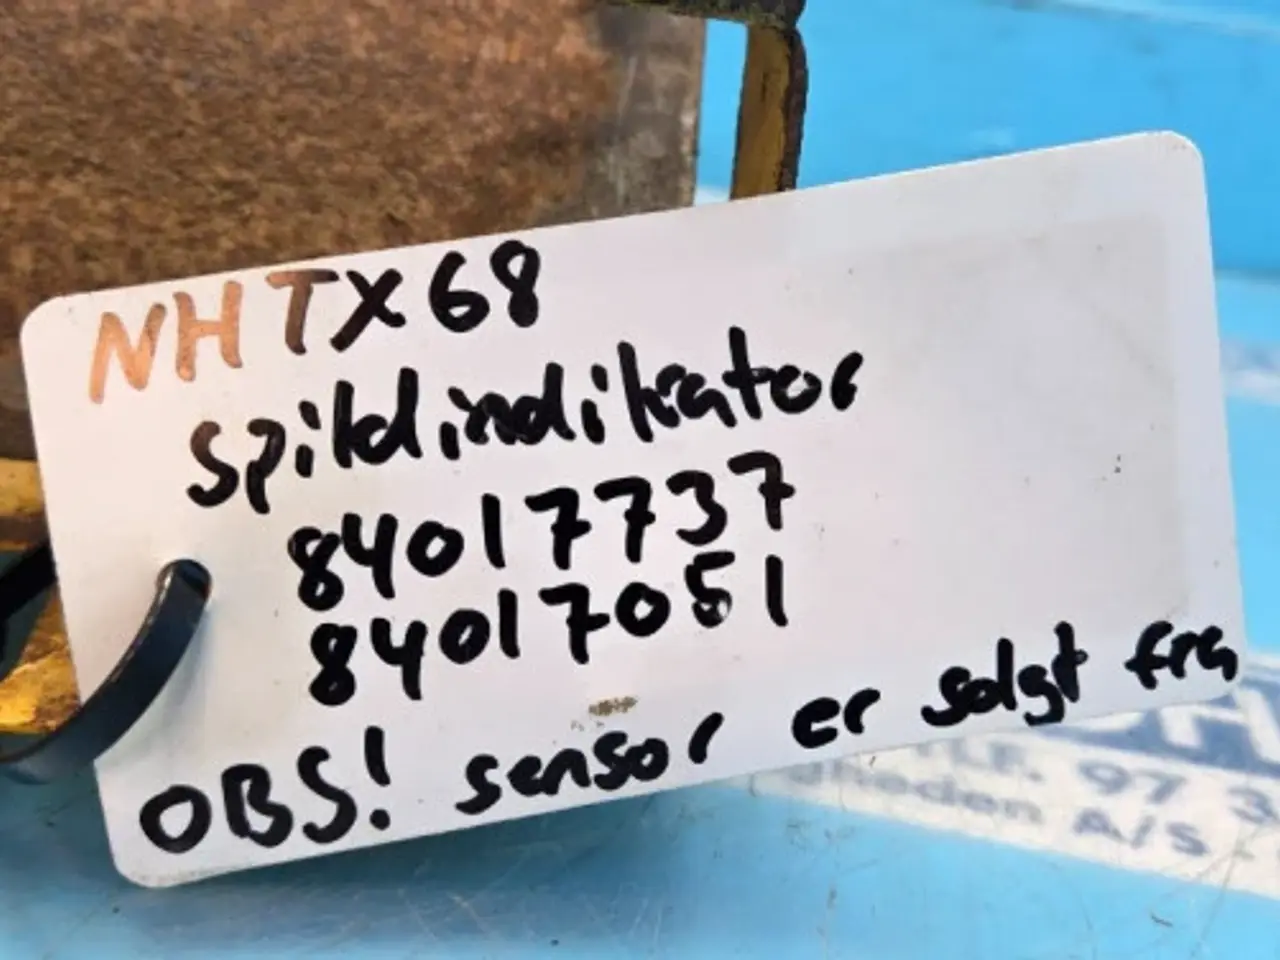 NH TX68
Spildindikator
84017737
84017051
OBS! sensor er solgt fra
TLF. 97 3
heden A/S -